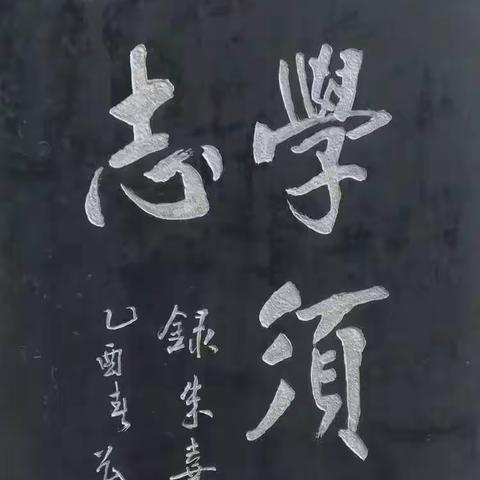 學須
志
錄朱熹
乙酉春